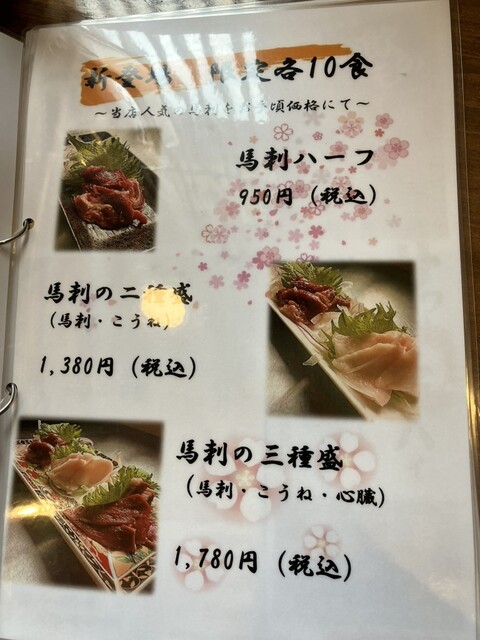 新登場 限定各10食
～当店人気の馬刺をお手頃価格にて～
馬刺ハーフ
950円 (税込)
馬刺の二種盛
(馬刺・こうね)
1,380円 (税込)
馬刺の三種盛
(馬刺・こうね・心臓)
1,780円 (税込)